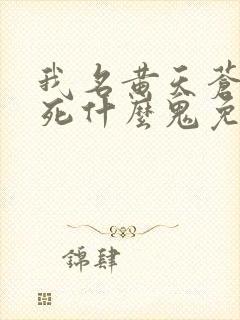 我名黄天蒼
死什麼鬼免
錦肆